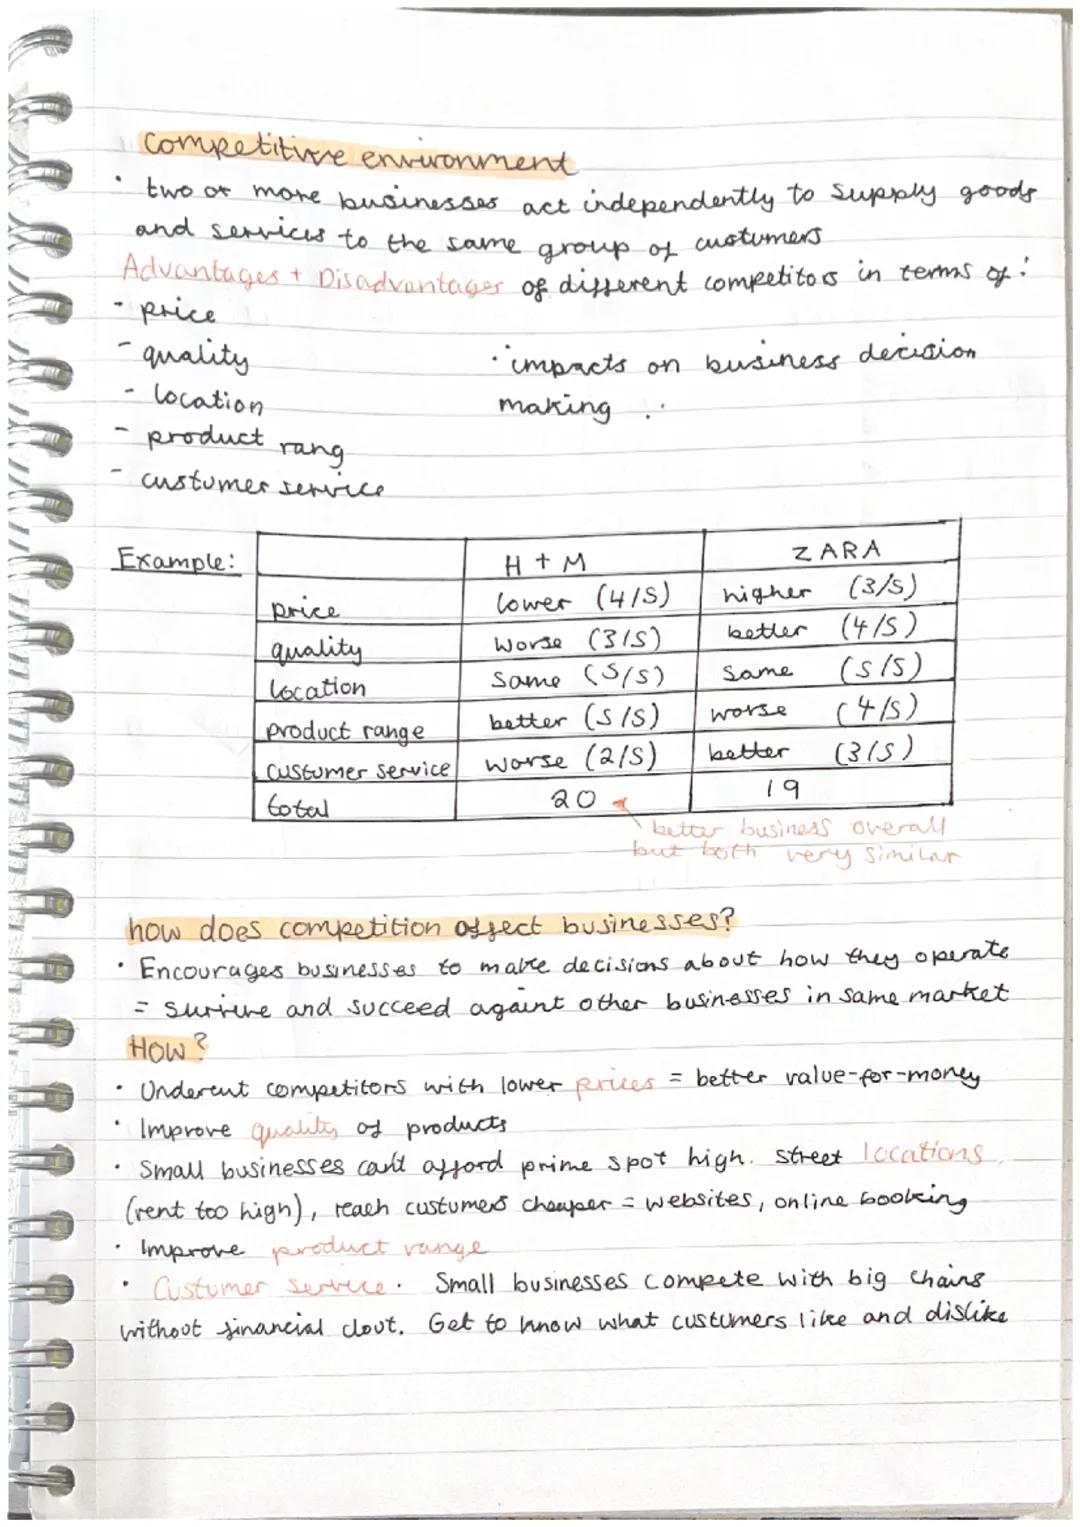 competitive environment
• two or more businesses act independently to supply goods
and services to the same group of custumers
Advantages + Disadvantages of different competitors in terms of :
- price
- quality
• impacts on business decision
- location
making
- product rang
- custumer service
Example:
H + M ZARA
price lower (4/5) higher (3/5)
quality worse (3/5) better (4/5)
location same (5/5) same (5/5)
product range better (5/5) worse (4/5)
custumer service worse (2/5) better (3/5)
total 20 19
better business overall
but both very similar
how does competition affect businesses?
• Encourages businesses to make decisions about how they operate
= survive and succeed againt other businesses in same market
HOW?
• Undercut competitors with lower prices = better value-for-money
• Improve quality of products
• Small businesses can't afford prime spot high. street locations
(rent too high), reach custumers cheaper = websites, online booking
• Improve product range
• Custumer service. Small businesses compete with big chains
without financial clout. Get to know what custumers like and dislike